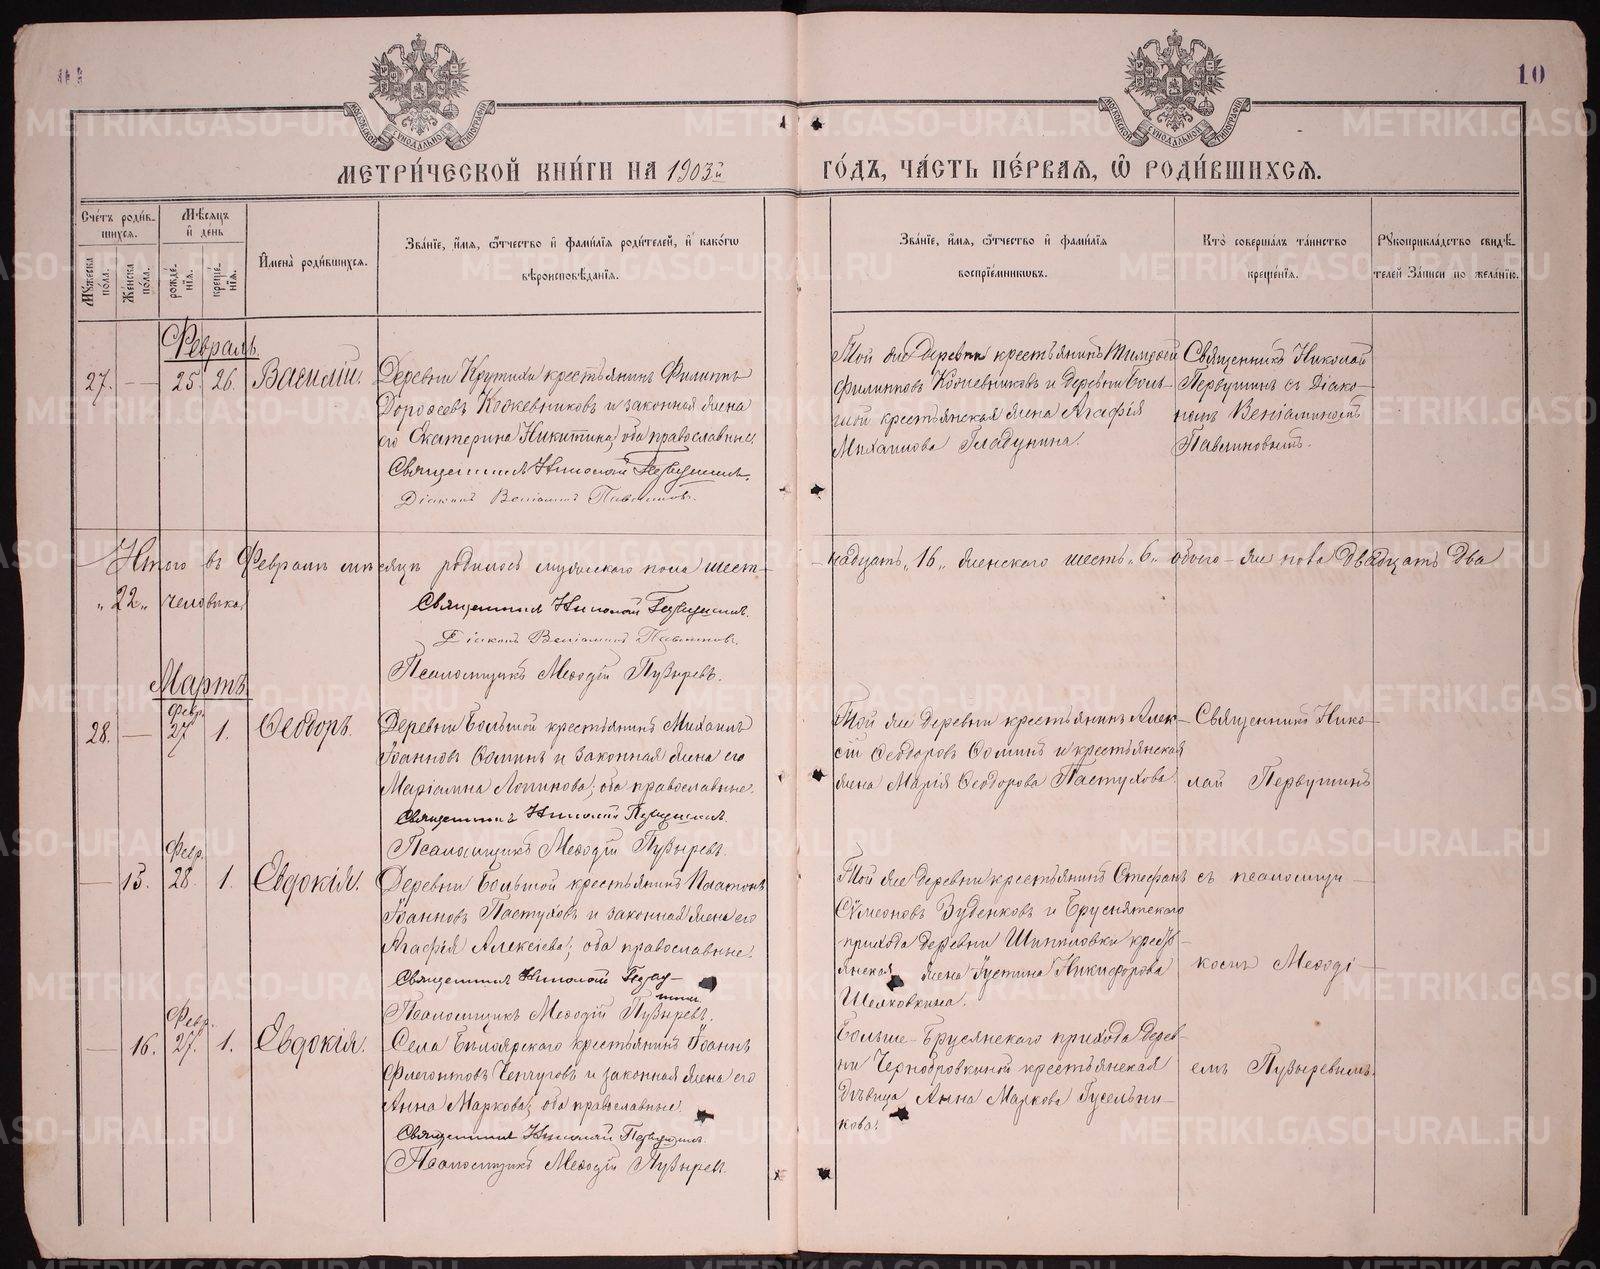 10
МЕТРИ́ЧЕСКОЙ КНИ́ГИ НА 1903й
ГО́ДЪ, ЧА́СТЬ ПЕ́РВАЯ, Ѡ РОДИ́ВШИХСЯ.
Сче́тъ роди́в-
шихся.
Мꙋ́жеска по́ла.
Же́нска по́ла.
Мѣ́сяцъ и де́нь
рожде́-
нїя.
креще́-
нїя.
И҆мена̀ роди́вшихся.
Зва́нїе, и҆́мя, ѻ҆́тчество и҆ фамѝлїя роди́телей, и҆ како́гѡ
вѣроисповѣ́данїя.
Зва́нїе, и҆́мя, ѻ҆́тчество и҆ фами́лїя
воспрїе́мниковъ.
Кто̀ соверша́лъ та́инство
креще́нїя.
Рꙋкоприкла́дство свидѣ́-
телей за́писи по жела́нїю.
Февраль.
27. — 25. 26. Василій.
Деревни Крутихи крестьянинъ Филиппъ
Дорофеевъ Кожевниковъ и законная жена
его Екатерина Никитина; оба православные.
Священникъ Николай Первушинъ.
Діаконъ Веніаминъ Павлиновъ.
Той же деревни крестьянинъ Тимофей
Филипповъ Кожевниковъ и деревни Боль-
шой крестьянская жена Агафія
Михаилова Гладунина.
Священникъ Николай
Первушинъ съ Діако-
номъ Веніаминомъ
Павлиновымъ.
Итого въ Февралѣ мѣсяцѣ родилось мужескаго пола шест-
надцать „16„ женскаго шесть „6„ обоего-же пола двадцать два
„22„ человѣка.
Священникъ Николай Первушинъ.
Діаконъ Веніаминъ Павлиновъ.
Псаломщикъ Меѳодій Пузыревъ.
Мартъ
28. — Февр. 27 1. Ѳеодоръ.
Деревни Большой крестьянинъ Михаилъ
Іоанновъ Ѳоминъ и законная жена его
Маріамна Логинова; оба православные.
Священникъ Николай Первушинъ.
Псаломщикъ Меѳодій Пузыревъ.
Той же деревни крестьянинъ Алек-
сій Ѳеодоровъ Ѳоминъ и крестьянская
жена Марія Ѳеодорова Пастухова.
Священникъ Нико-
лай Первушинъ
— 15. Февр. 28. 1. Евдокія.
Деревни Большой крестьянинъ Платонъ
Іоанновъ Пастуховъ и законная жена его
Агафія Алексіева; оба православные.
Священникъ Николай Перву-
шинъ
Псаломщикъ Меѳодій Пузыревъ.
Той же деревни крестьянинъ Стефанъ
Сѵмеоновъ Зуденковъ и Бруснятскаго
прихода деревни Шипиловки кресть-
янская жена Іустина Никифорова
Шелковкина.
съ псаломщи-
комъ Меѳоді-
— 16. Февр. 27. 1. Евдокія.
Села Бѣлоярскаго крестьянинъ Іоаннъ
Флегонтовъ Чепчуговъ и законная жена его
Анна Маркова; оба православные.
Священникъ Николай Первушинъ.
Псаломщикъ Меѳодій Пузыревъ.
Больше-Бруснянскаго прихода дерев-
ни Чернобровкиной крестьянская
дѣвица Анна Маркова Гусельни-
кова.
емъ Пузыревымъ.
METRIKI.GASO-URAL.RU